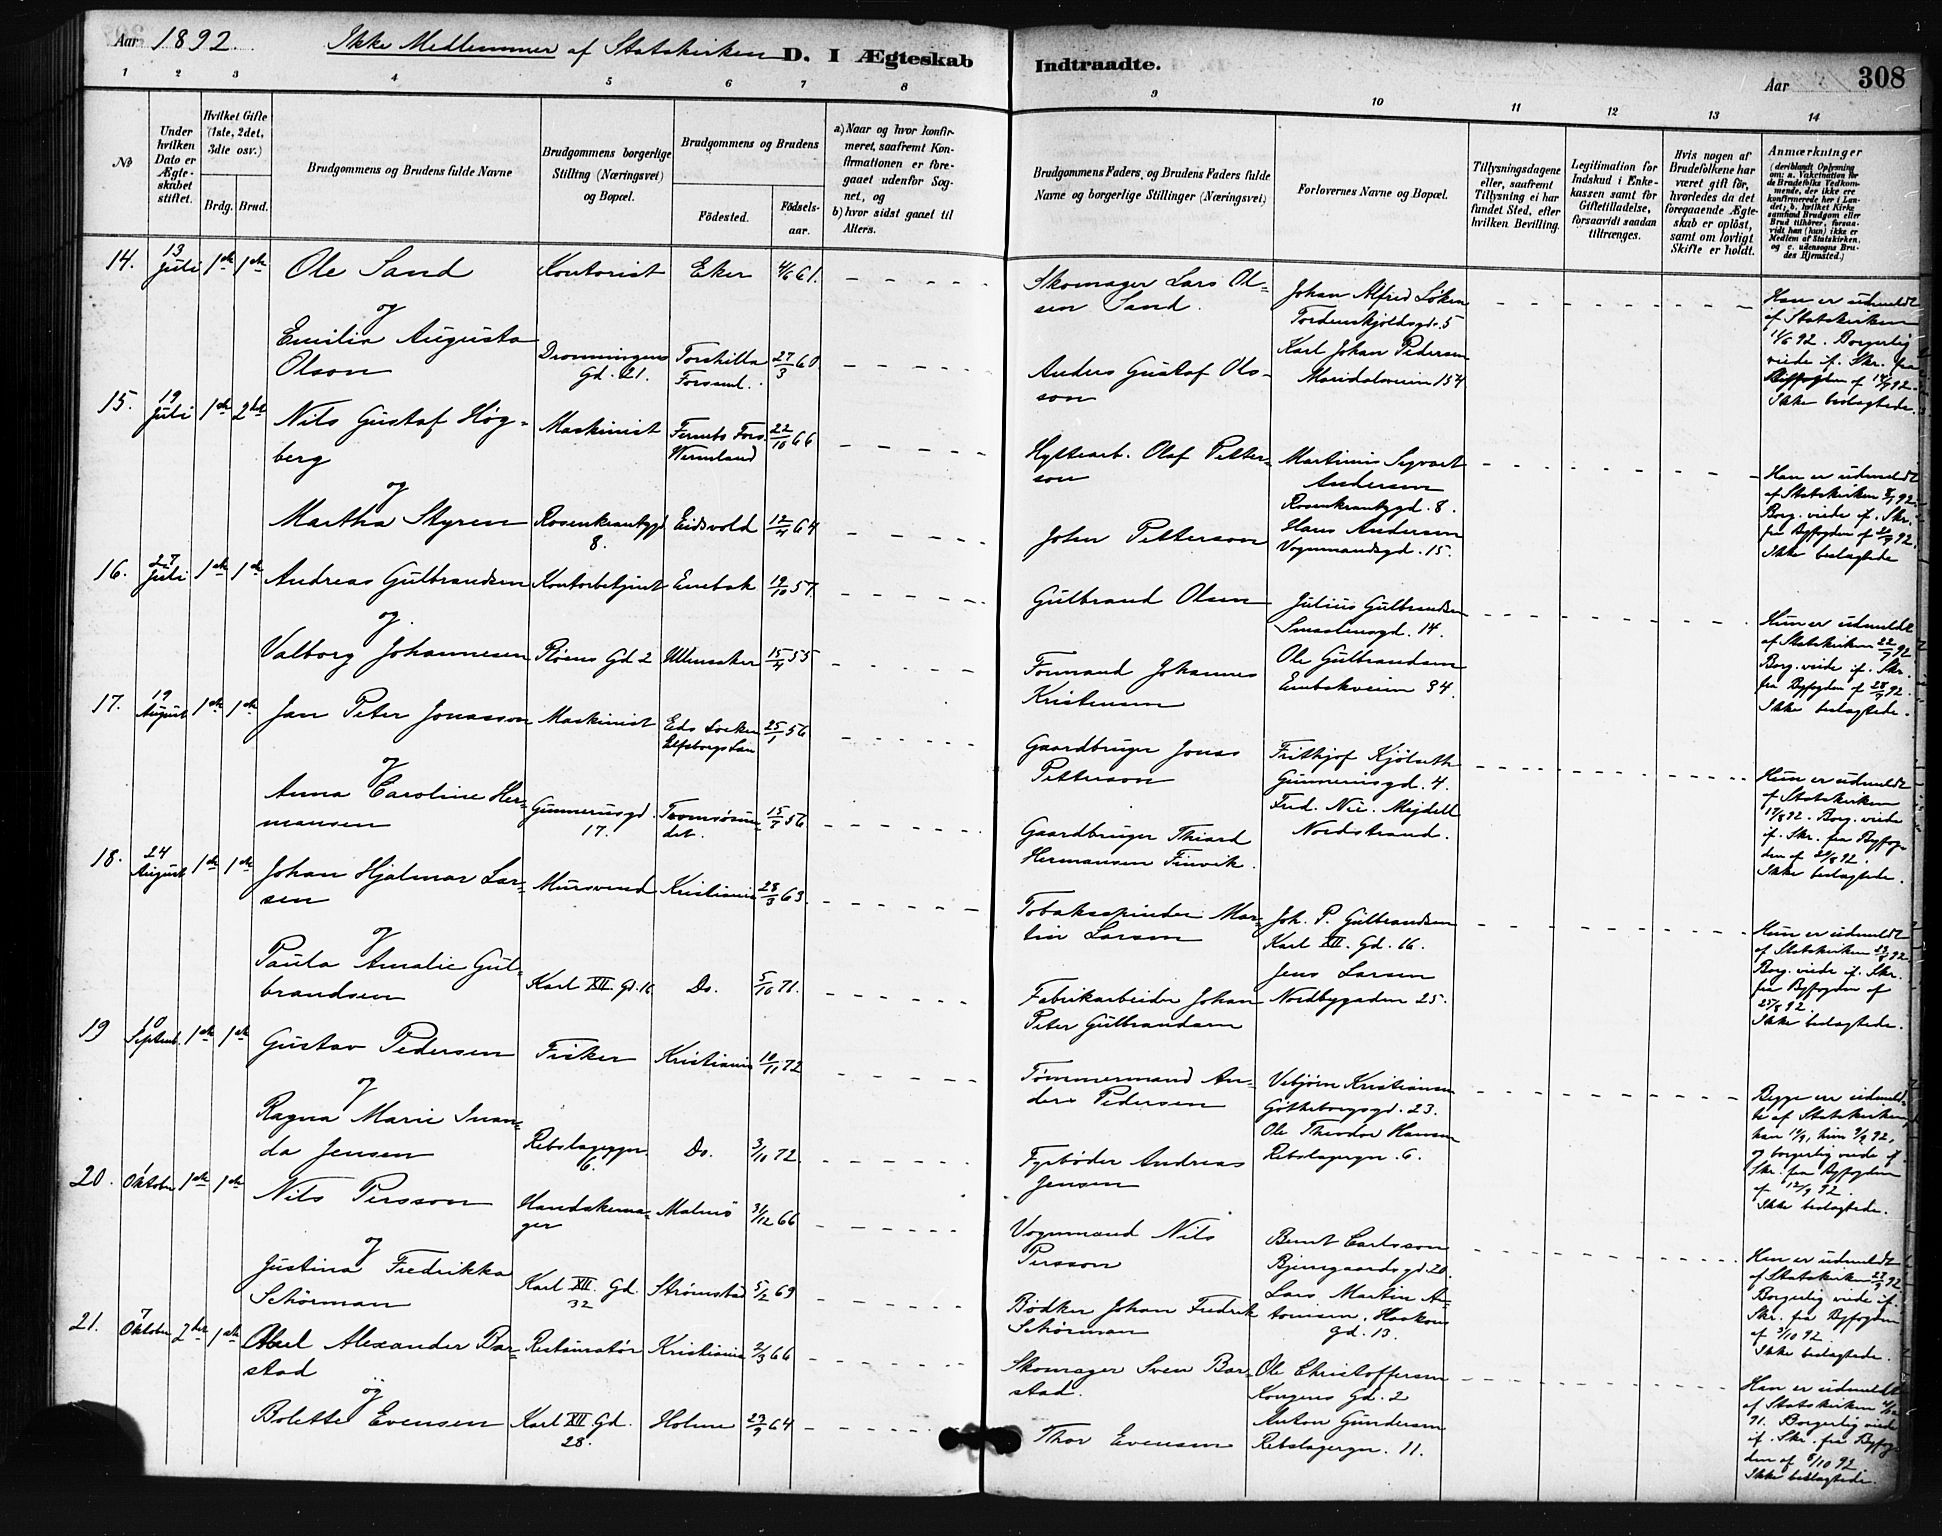 Aar 1892. Ikke Medlemmer af Statskirken D. I Ægteskab Indtraadte. Aar 308
1 2 3 4 5 6 7 8 9 10 11 12 13 14
No
Under hvilken Dato er Ægteskabet stiftet.
Hvilket Gifte (1ste, 2det, 3die osv.)
Brdg. Brud.
Brudgommens og Brudens fulde Navne
Brudgommens borgerlige Stilling (Næringsvei) og Bopæl.
Brudgommens og Brudens
Fødested.
Fødsels-aar.
a) Naar og hvor konfirmeret, saafremt Konfirmationen er foregaaet udenfor Sognet, og
b) hvor sidst gaaet til Alters.
Brudgommens Faders, og Brudens Faders fulde Navne og borgerlige Stillinger (Næringsvei)
Forlovernes Navne og Bopæl.
Tillysningsdagene eller, saafremt Tillysning ei har fundet Sted, efter hvilken Bevilling.
Legitimation for Indskud i Enkekassen samt for Giftetilladelse, forsaavidt saadan tiltrænges.
Hvis nogen af Brudefolkene har været gift før, hvorledes da det foregaaende Ægteskab er opløst, samt om lovligt Skifte er holdt.
Anmærkninger
(deriblandt Oplysning om: a. Vakcination for de Brudefolks Vedkommende, der ikke ere konfirmerede her i Landet; b. hvilket Kirkesamfund Brudgom eller Brud tilhører, forsaavidt han (hun) ikke er Medlem af Statskirken, og c. udensogns Brudes Hjemsted.)
14. 13 Juli 1ste 1ste Ole Sand Kontorist Eker 4/6 61.
Skomager Lars Olsen Sand.
Johan Alfred Løken
Tordenskjoldsgd. 5
og
Emilia Augusta Olson
Dronningens Gd. 21.
Torskilla Forsaml.
27/3 60
Anders Gustaf Olsson
Karl Johan Pedersen
Maridalsveien 154
Han er udmeldt
af Statskirken
92. Borgerlig
viede if. Skr. fra
Byfogden af 92.
Ikke beslægtede.
15. 19 Juli 1ste 2det Nils Gustaf Högberg
Maskinist
Fernebo Fors. Wermland
22/10 66
Hyttearb. Olaf Petterson
Martinius Sigvart Andersen
Rosenkrantzgd. 8.
og
Martha Styren
Rosenkrantzgd 8.
Eidsvold 12/4 64
John Petterson
Hans Andersen
Vognmandsgd. 15.
Han er udmeldt
af Statskirken 92.
Borg. viede if. Skr.
fra Byfogden af 92.
Ikke beslægtede
16. 27 Juli 1ste 1ste Andreas Gulbrandsen
Kontorbetjent Enebak 19/10 57.
Gulbrand Olsen
Julius Gulbrandsen
Smaalensgd. 14.
og
Valborg Johannesen
Røens Gd 2
Ullensaker 15/4 55
Formand Johannes Kristensen
Ole Gulbrandsen
Enebakveien 34.
Hun er udmeldt
af Statskirken 22/7 92
Borg. viede if. Skr.
fra Byfogden af 92.
Ikke beslægtede.
17. 19 August 1ste 1ste Jan Peter Jonasson
Maskinist
Eds Socken Elfsborgs Län
25/1 56
Gaardbruger Jonas Petterson
Frithjof Kjølseth
Gunnerusgd. 4.
og
Anna Caroline Hermansen
Gunnerusgd. 17.
Tromsøsundet.
15/7 56
Gaardbruger Thiard Hermansen Finvik.
Fred. Nic. Mejdell
Nordstrand.
Hun er udmeldt
af Statskirken
92. Borg. viede
if. Skr. fra Byfogden
af 92.
Ikke beslægtede.
18. 24 August 1ste 1ste Johan Hjalmar Larsen
Mursvend Kristiania 63.
Tobakspinder Martin Larsen
Joh. P. Gulbrandsen
Karl XII. Gd. 16.
og
Paula Amalie Gulbrandsen
Karl XII. Gd. 16
Do. 5/10 71.
Fabrikarbeider Johan Peter Gulbrandsen
Jens Larsen
Nordbygaden 25.
Hun er udmeldt
af Statskirken 92
Borg. viede if. Skr.
fra Byfogden af
25/8 92.
Ikke beslægtede.
19 10 Septemb. 1ste 1ste Gustav Pedersen
Fisker Kristiania 10/11 72
Tømmermand Anders Pedersen
Vebjørn Kristiansen
Götheborgsgd. 23.
og
Ragna Marie Inanda Jensen
Rebslagergn 6.
Do. 3/10 72.
Fyrbøder Andreas Jensen
Ole Theodor Hansen
Rebslagergn. 6.
Begge er udmeldte
af Statskirken,
han hun 92,
og borgerlig viede if.
Skr. fra Byfogden
af 12/9 92.
Ikke beslægtede.
20. Oktober 1ste 1ste Nils Persson
Handskemager
Malmö 31/12 66
Vognmand Nils Persson
Bernt Carlsson
Bjerregaardsgd. 20.
og
Justina Fredrikka Schörman
Karl XII. Gd. 32
Strømstad 5/2 69
Bødker Johan Fredrik Schörman
Lars Martin Antonisen. Haakons Gd. 13.
Han er udmeldt
af Statskirken 92
Borgerlig viede if.
Skr. fra Byfogden
af 3/10 92.
Ikke beslægtede.
21. 7 Oktober 2det 1ste Axel Alexander Barstad
Restauratør Kristiania 2/3 66
Skomager Sven Barstad.
Ole Christoffersen
Kongens Gd. 2
og
Bolette Evensen
Karl XII. Gd. 28.
Holme 64
Thor Evensen
Anton Gundersen
Rebslagergn. 11.
Han er udmeldt
af Statskirken
91. Borgerlig viede
if. Skr. fra Byfogden
af 6/10 92.
Ikke beslægtede.